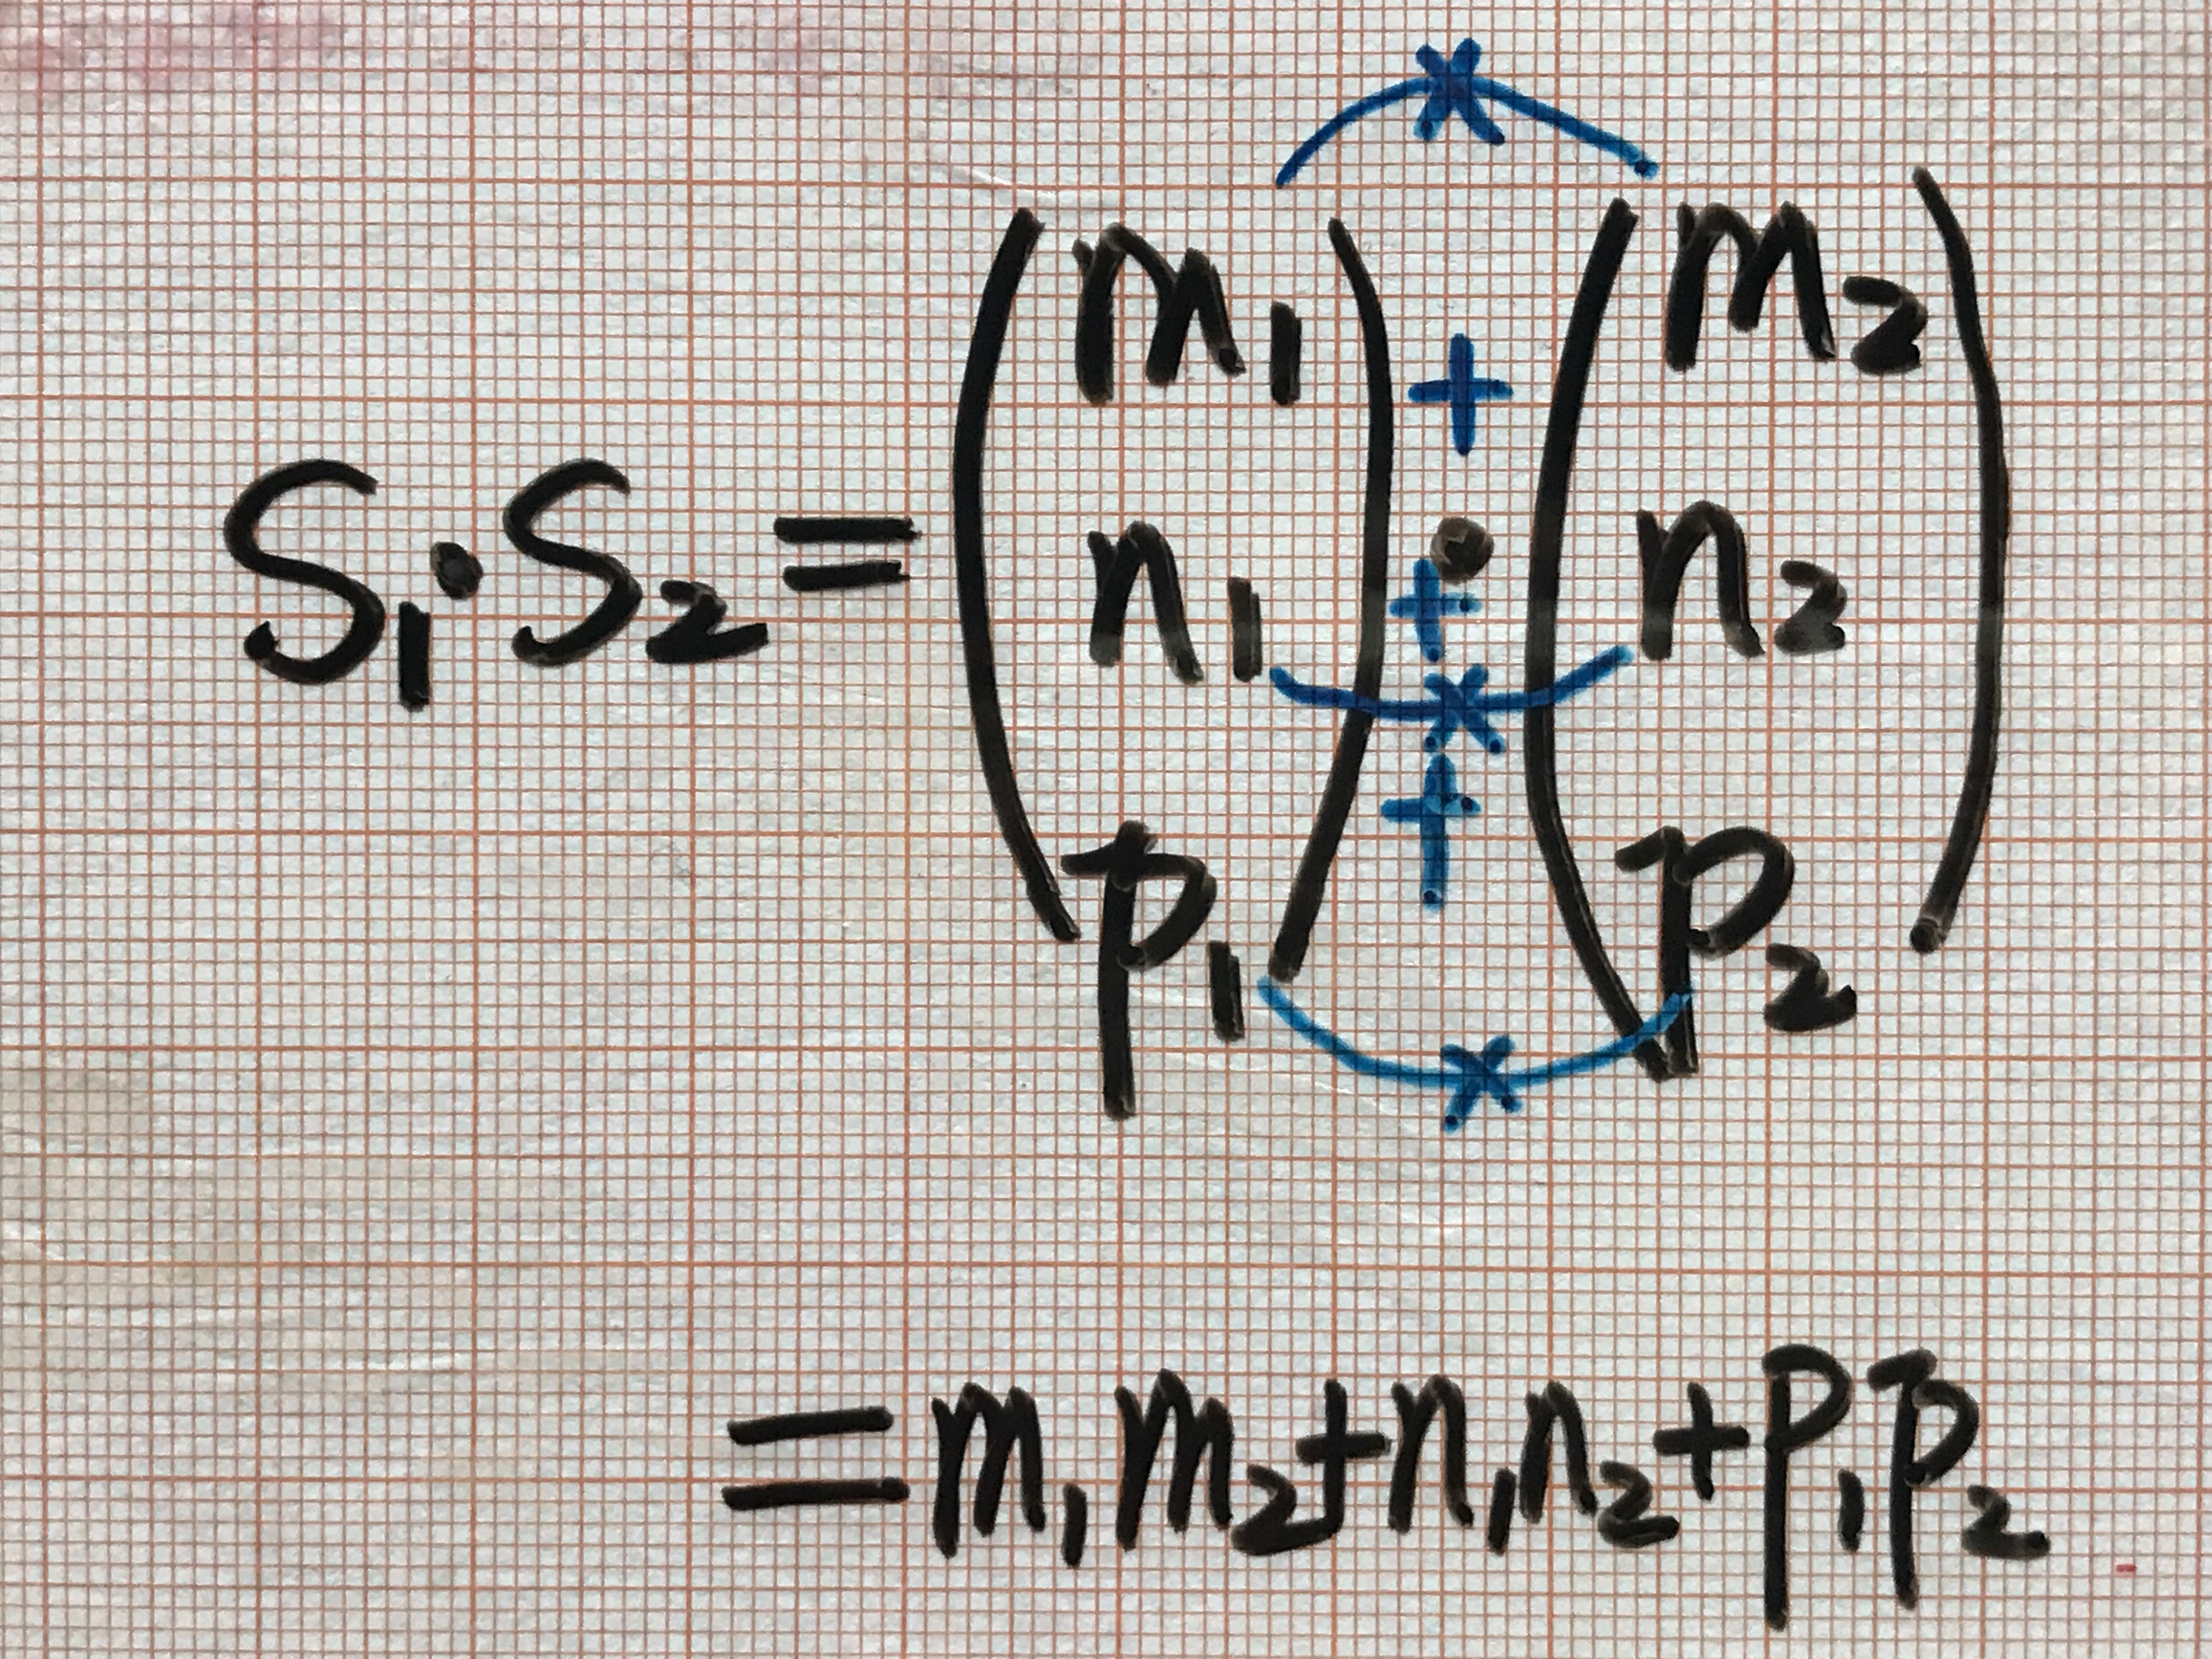 S₁·S₂=(m₁ n₁ p₁)·(m₂ n₂ p₂)
* + + * + *
=m₁m₂+n₁n₂+p₁p₂